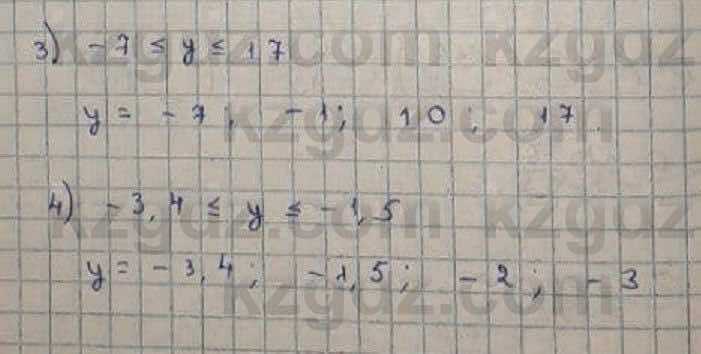 3) -7 ≤ y ≤ 17
y = -7; -1; 10; 17.
4) -3,4 ≤ y ≤ -1,5
y = -3,4; -1,5; -2; -3
kzgdz.com kzgdz.com
kzgdz.com
kzgdz.com kzgdz
kzgdz.com